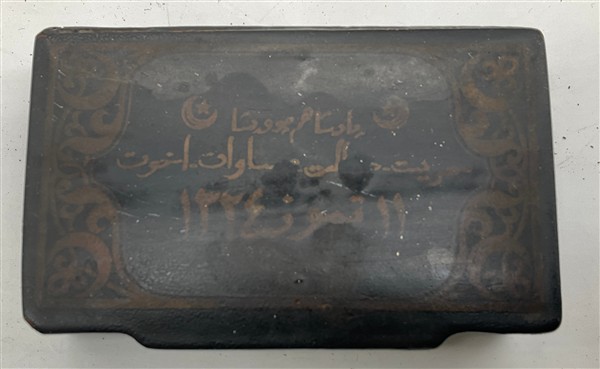 پادشاهم چوق یشا
حریت عدالت مساوات اخوت
١١ تموز ١٣٢٤